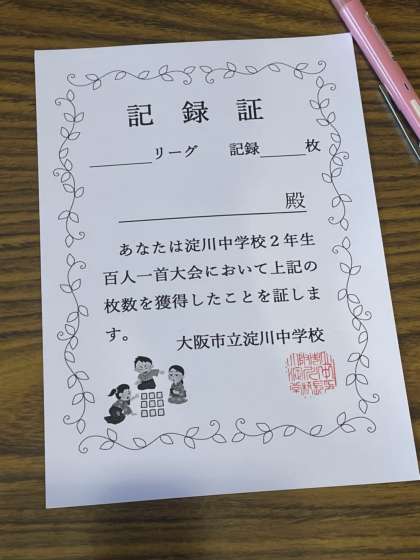 記録証
______リーグ　記録_____枚
殿
あなたは淀川中学校２年生
百人一首大会において上記の
枚数を獲得したことを証しま
す。
大阪市立淀川中学校